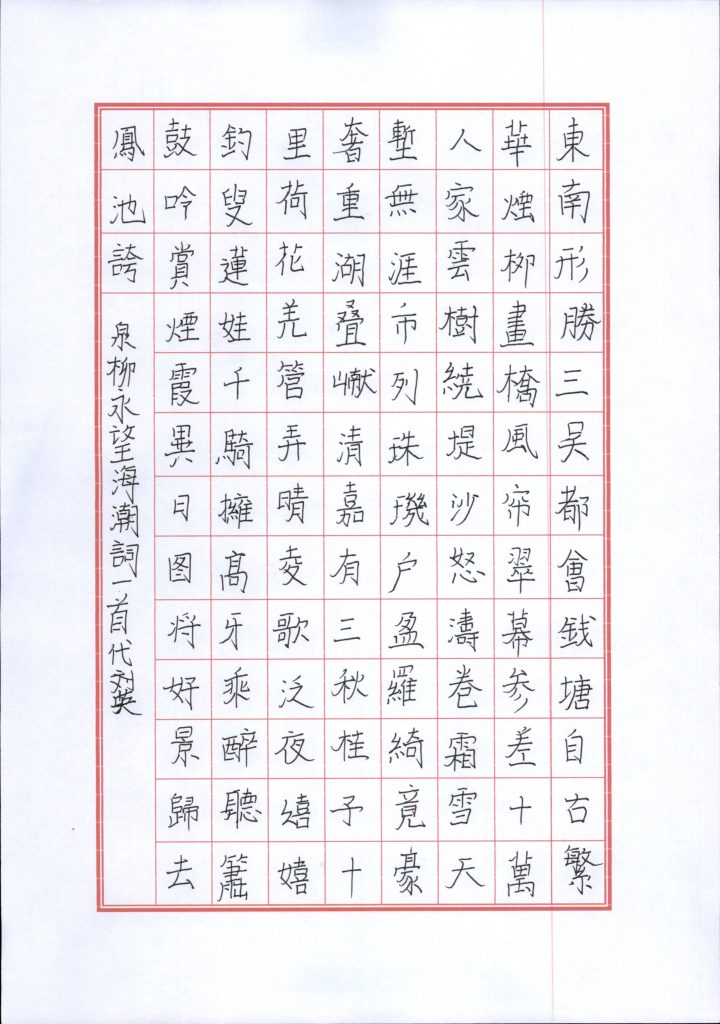 東南形勝三吴都會銭塘自古繁
華煙栁畫橋風帘翠幕参差十萬
人家雲樹繞堤沙怒濤卷霜雪天
塹無涯市列珠璣户盈羅綺竟豪
奢重湖叠巘清嘉有三秋桂子十
里荷花羌管弄晴夌歌泛夜嬉嬉
釣叟蓮娃千騎擁髙牙乘醉聽簫
鼓吟賞煙霞異日图将好景歸去
鳳池誇
柳永望海潮詞一首代刘英